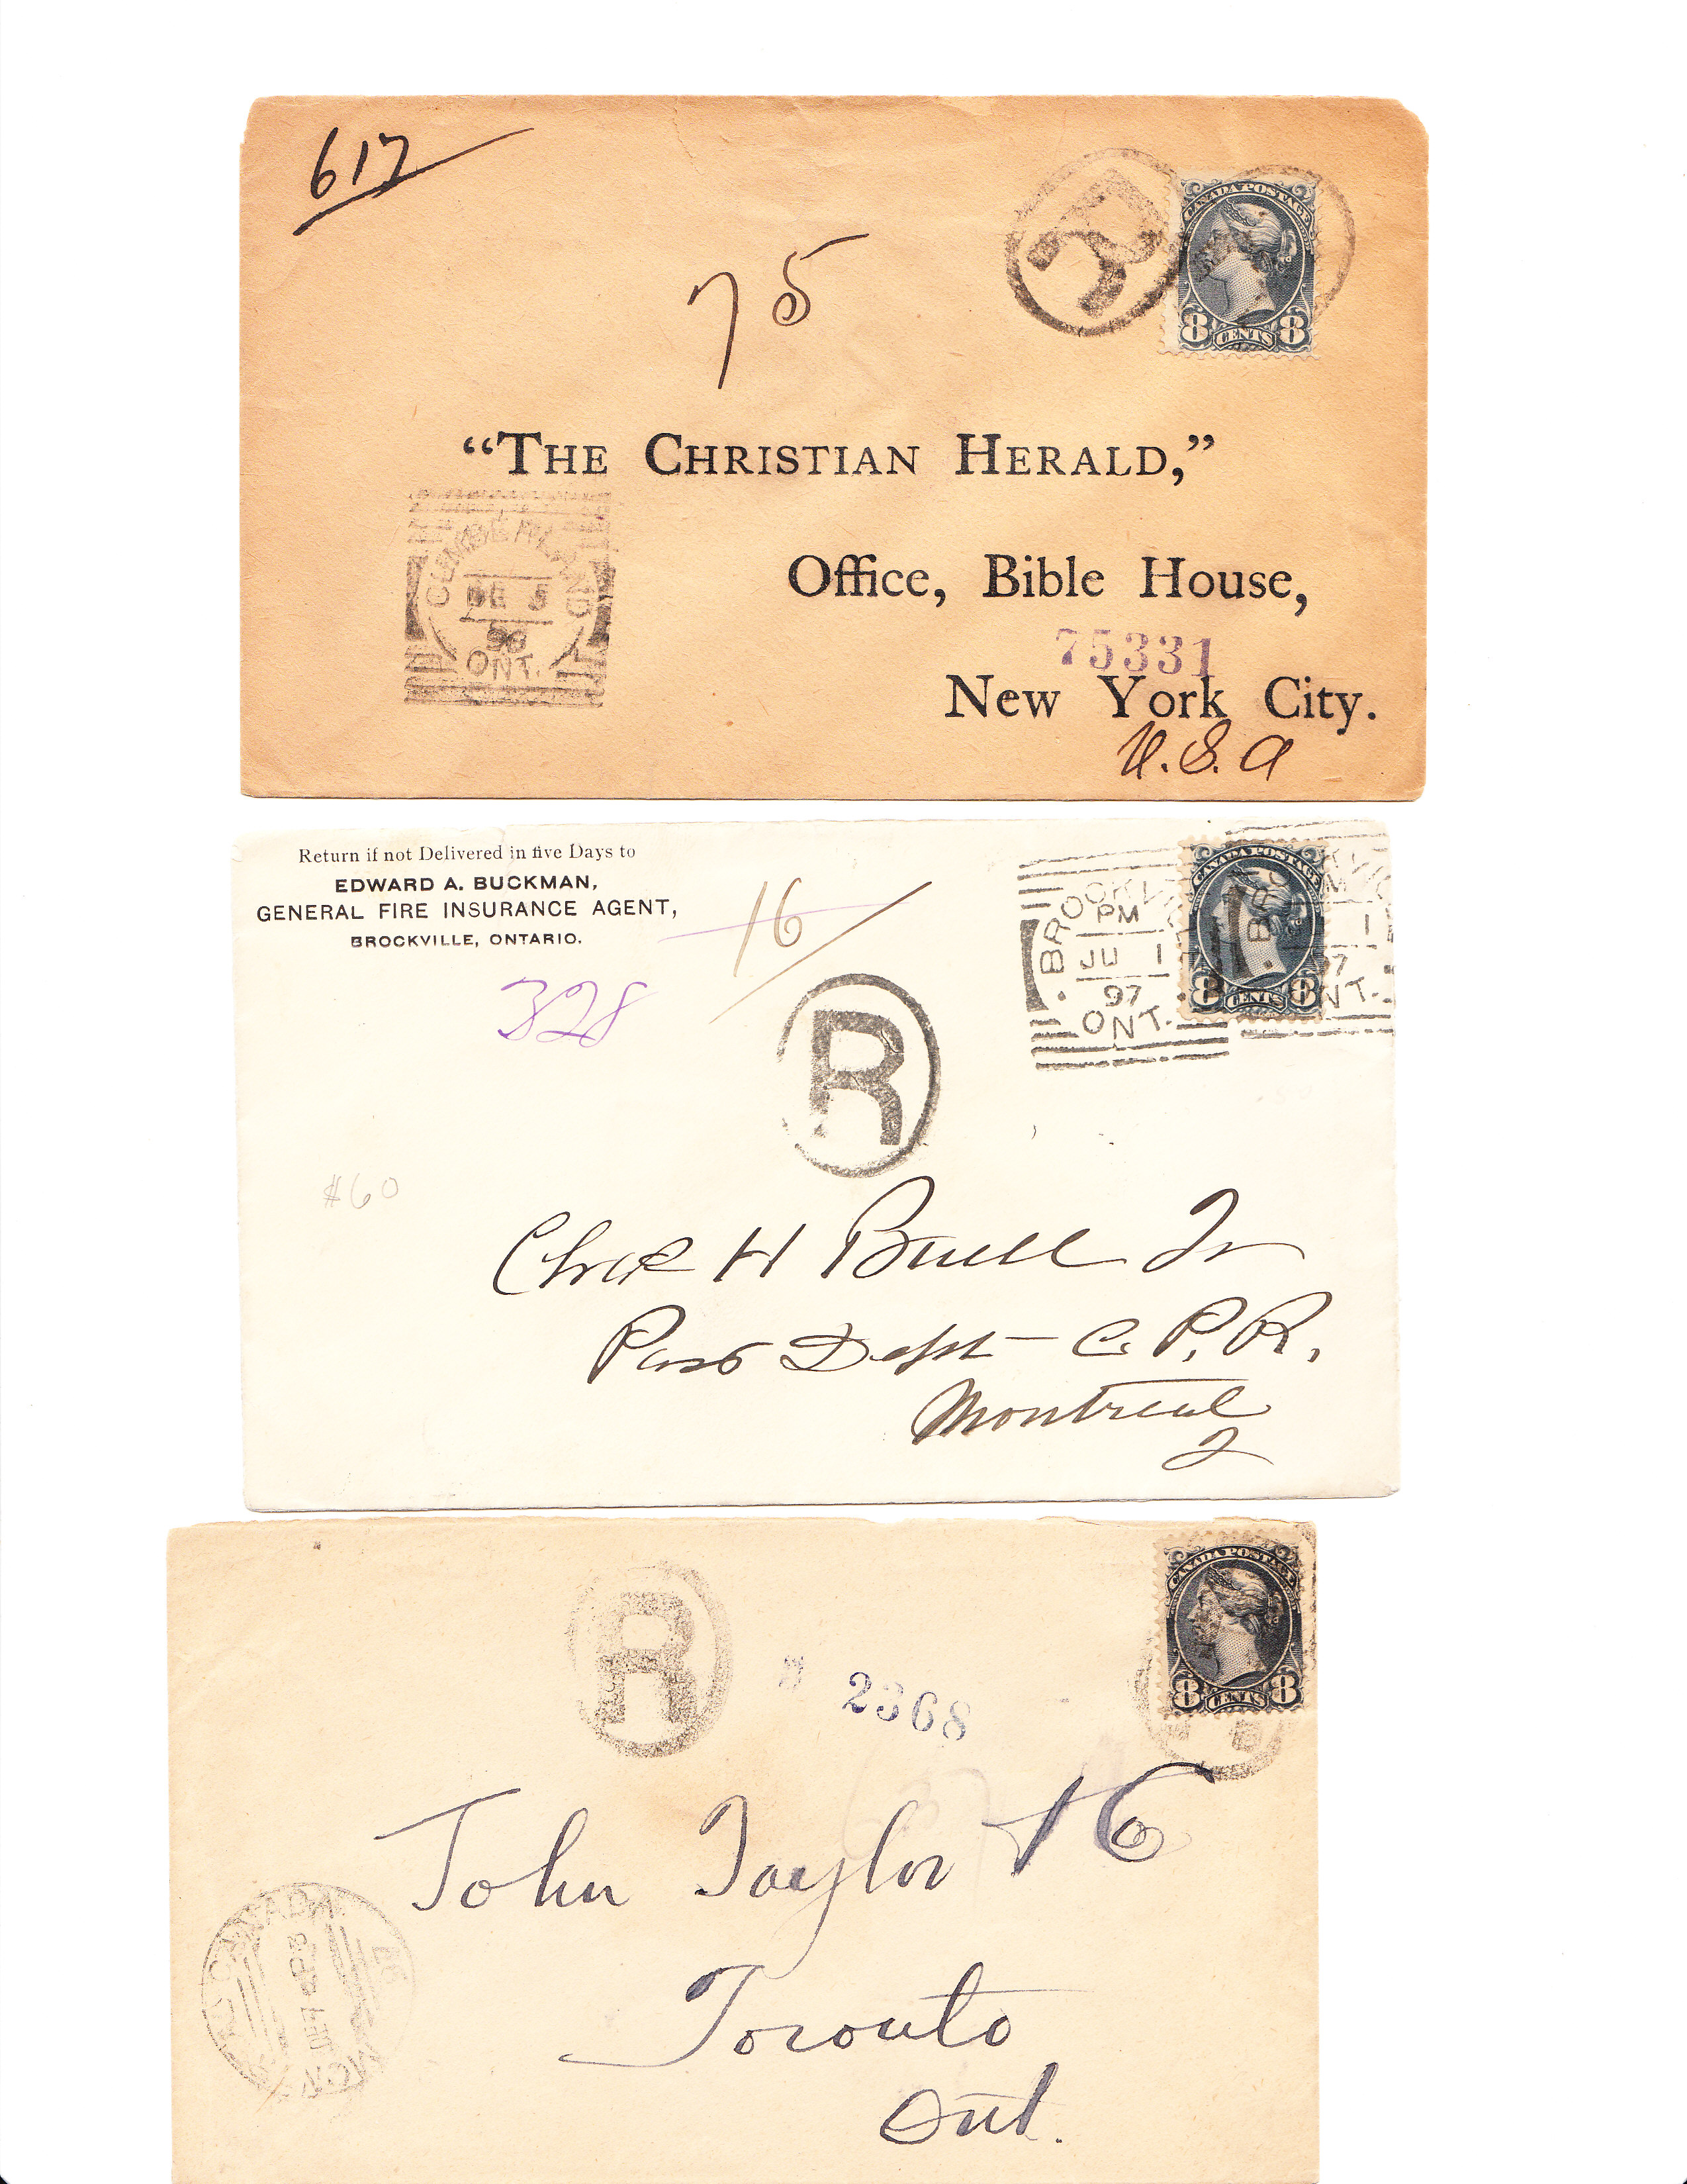 617
75
R
CANADA POSTAGE
8 CENTS 8
"THE CHRISTIAN HERALD,"
Office, Bible House,
75331
New York City.
U.S.A
DE 5
98
ONT.
Return if not Delivered in five Days to
EDWARD A. BUCKMAN,
GENERAL FIRE INSURANCE AGENT,
BROCKVILLE, ONTARIO.
16
328
R
BROCKVILLE
PM
JU 1
97
ONT.
CANADA POSTAGE
8 CENTS 8
#60
Chas H Buell Jr
Pass Dept C. P. R.
Montreal
R
2368
CANADA POSTAGE
8 CENTS 8
John Taylor
16
Toronto
Ont.
CANADA